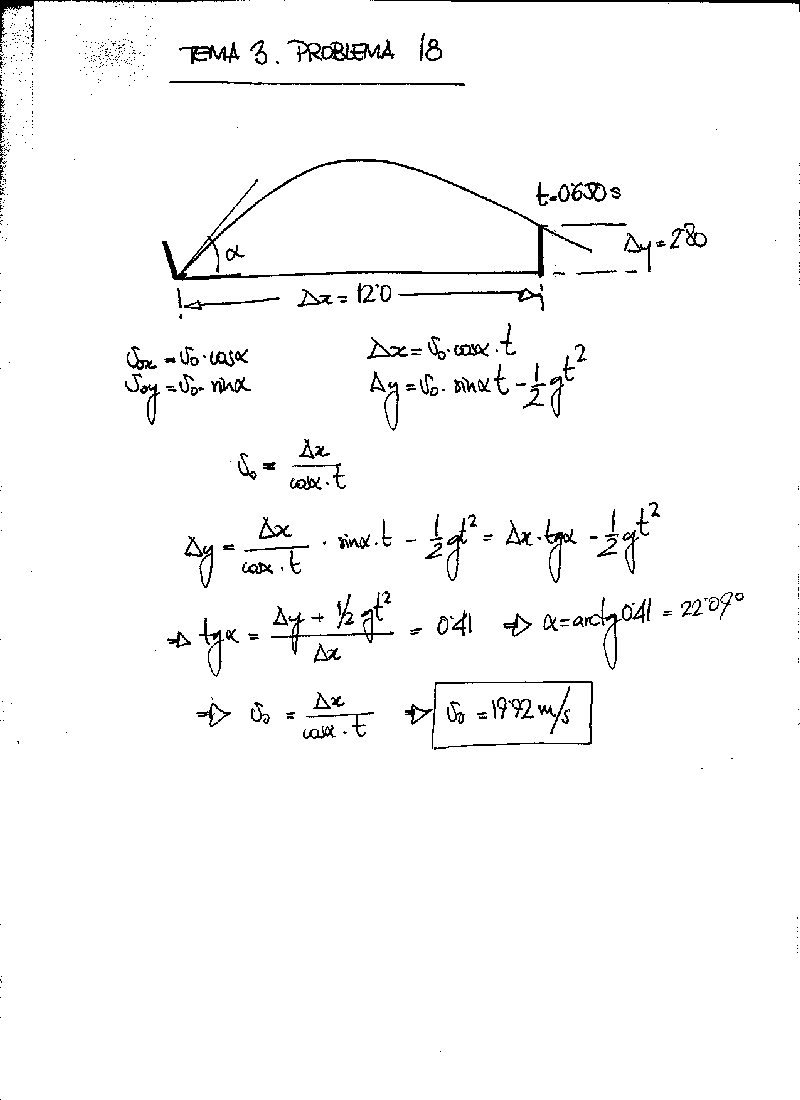 TEMA 3. PROBLEMA 18
t=0'650 s
α
Δy = 2'80
Δx = 12'0
v₀ₓ = v₀ · cosα
Δx = v₀ · cosα · t
v₀y = v₀ · sinα
Δy = v₀ · sinα t - 1/2 gt²
v₀ = Δx / cosα · t
Δy = Δx / cosα · t · sinα · t - 1/2 gt² = Δx · tgα - 1/2 gt²
⇒ tgα = Δy + 1/2 gt² / Δx = 0'41 ⇒ α = arctg 0'41 = 22'09°
⇒ v₀ = Δx / cosα · t ⇒ v₀ = 19'92 m/s